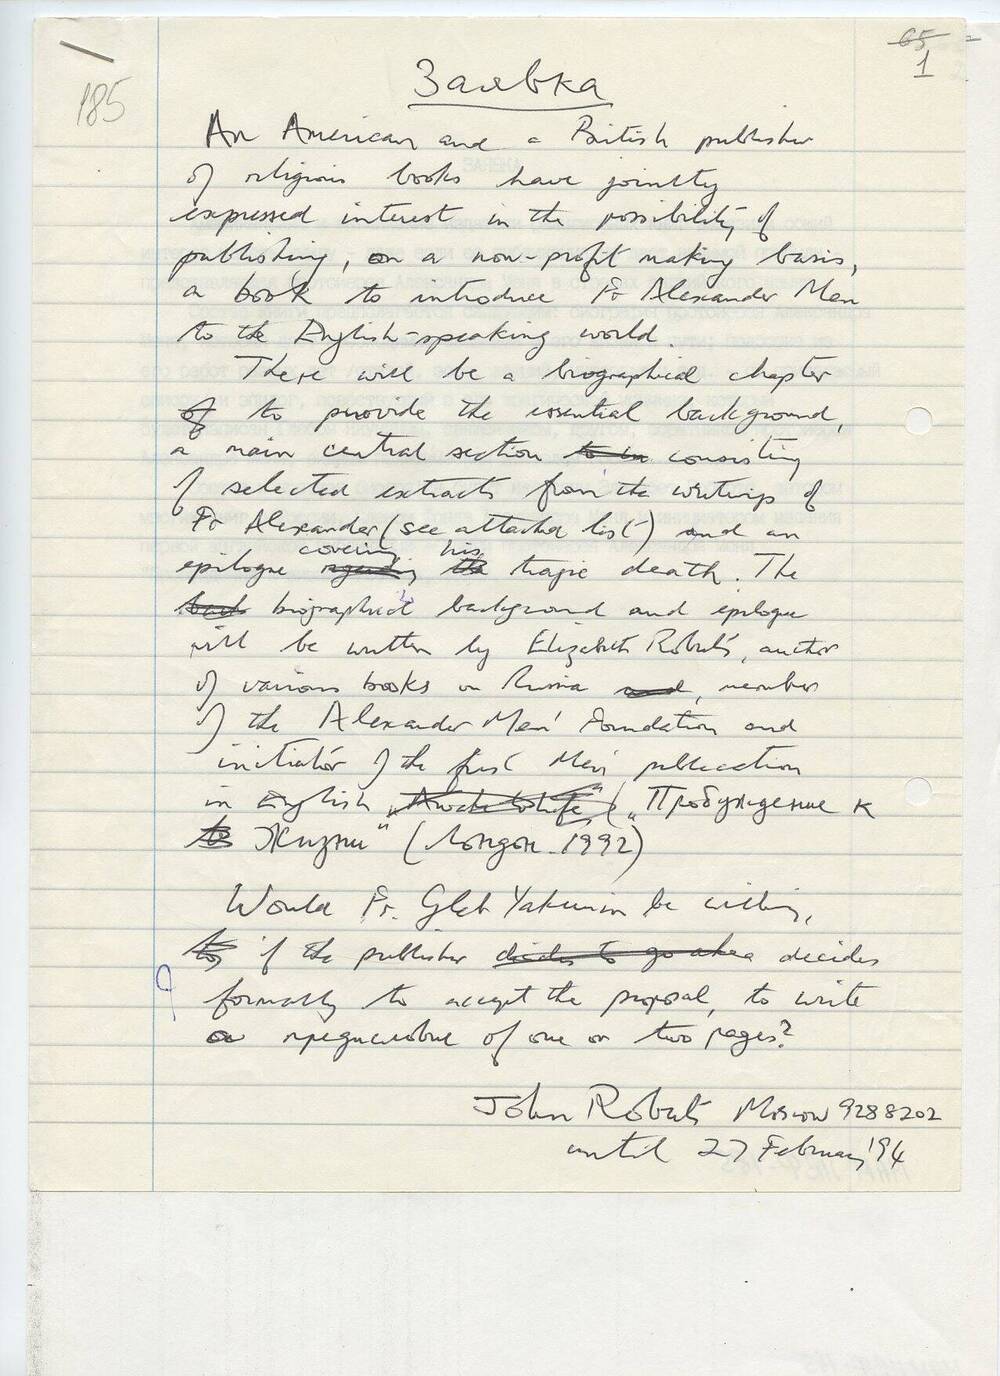 65
1
185
Заявка
An American and a British publisher
of religious books have jointly
expressed interest in the possibility of
publishing, on a non-profit making basis,
a book to introduce Fr Alexander Men
to the English-speaking world.
There will be a biographical chapter
of to provide the essential background,
a main central section to in consisting
of selected extracts from the writings of
Fr Alexander (see attached list) and an
covering his
epilogue regarding the tragic death. The
back biographical background and epilogue
will be written by Elizabeth Roberts, author
of various books on Russia and, member
of the Alexander Men' Foundation and
initiator of the first Men' publication
in English „Awake to Life" („Пробуждение к
to Жизни" (Лондон. 1992)
Would Fr. Gleb Yakunin be willing,
to if the publisher decides to go ahea decides
formally to accept the proposal, to write
a предисловие of one or two pages?
John Roberts Moscow 9288202
until 27 February '94